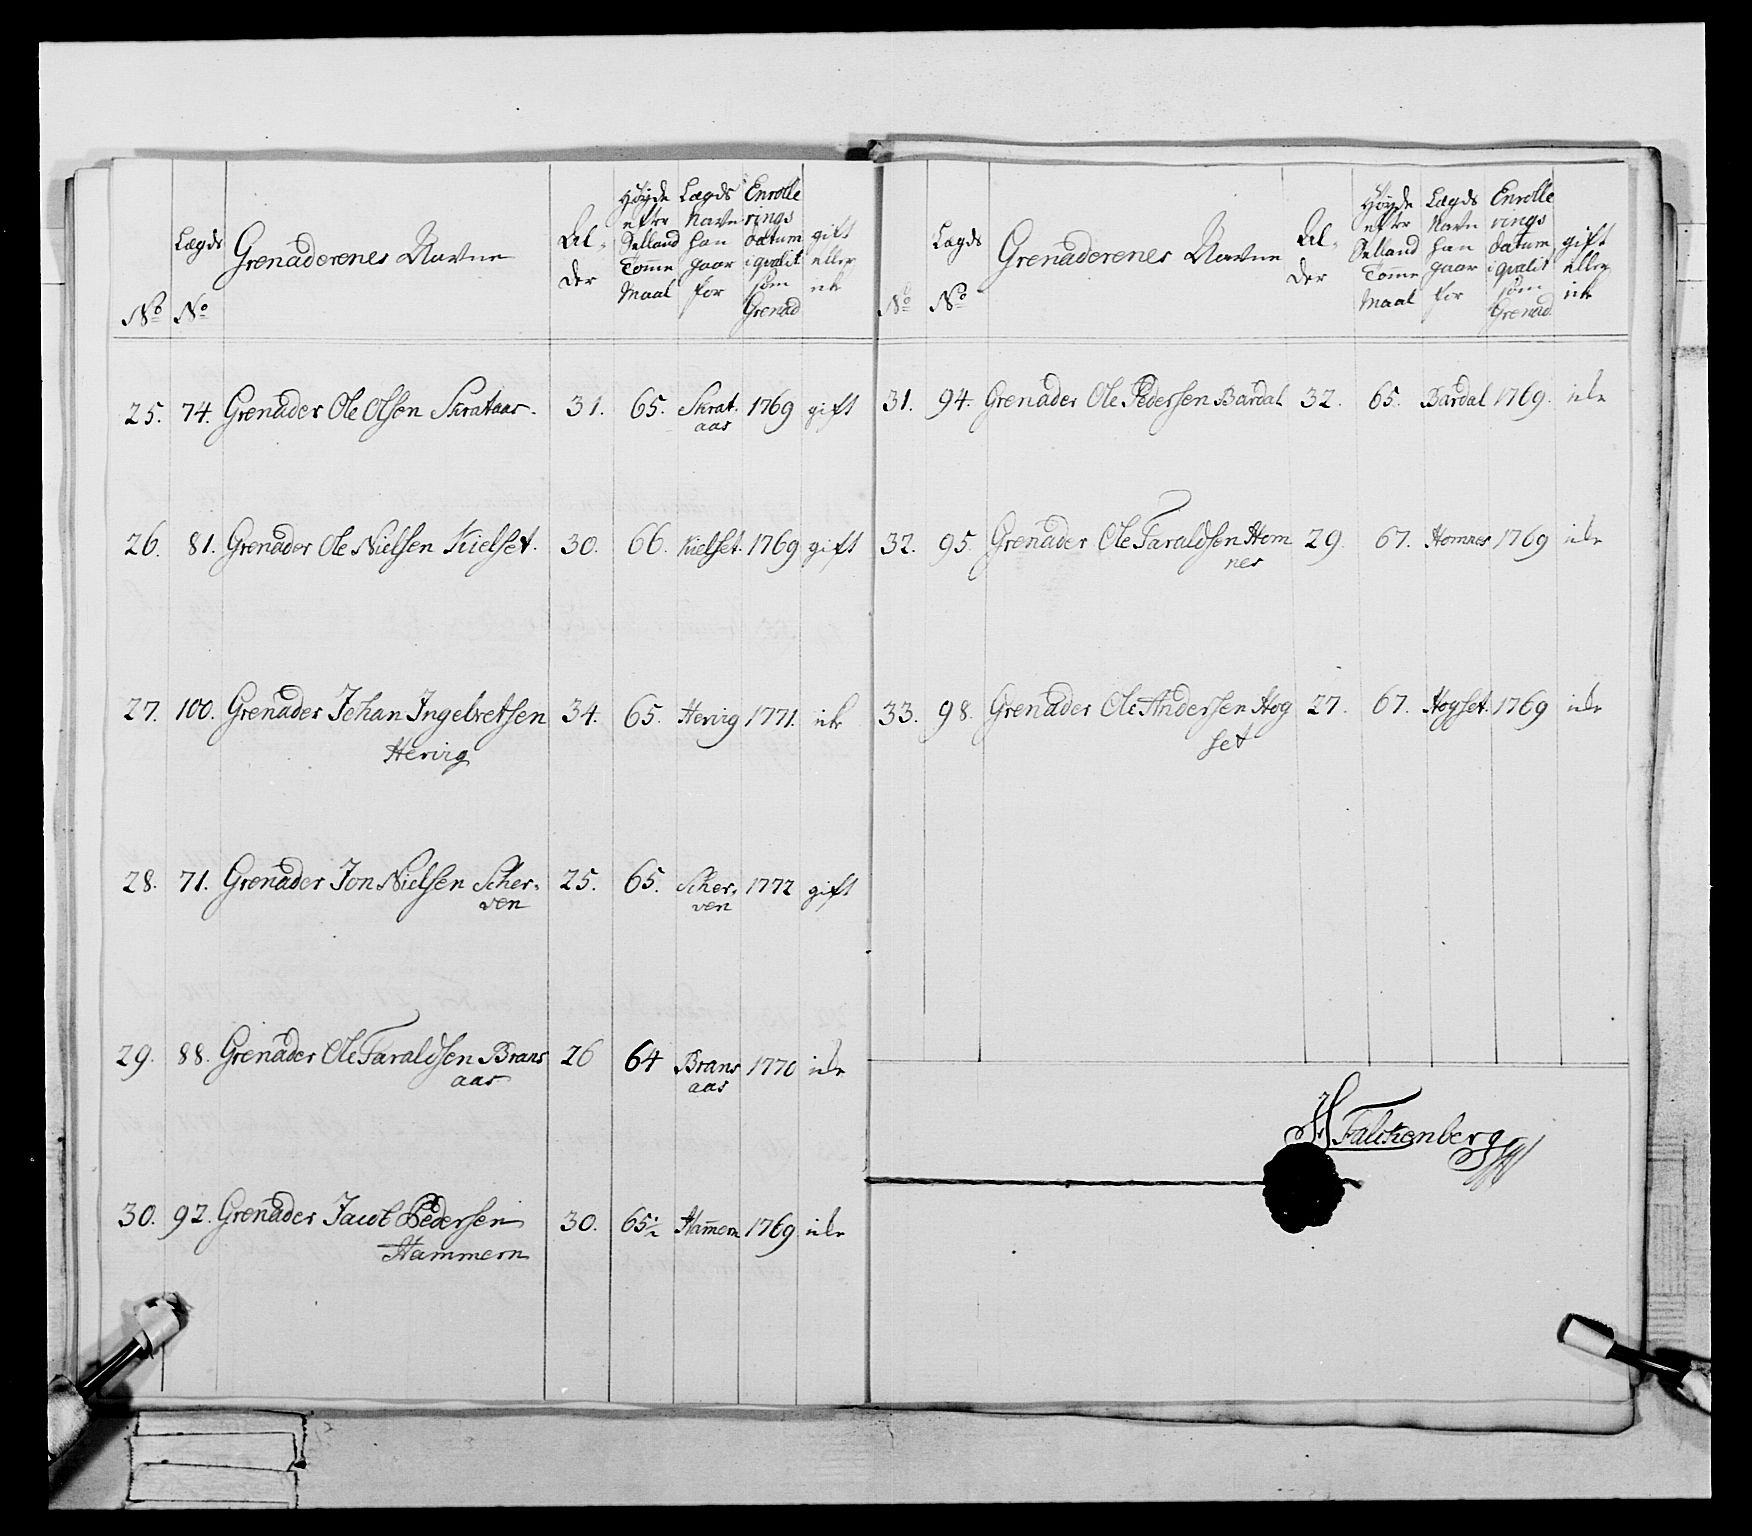 No
Lægds No
Grenaderenes Navne
Al-
der
Höyde
efter
Sælland
Tomme
Maal
Lægds
Navn
han
gaar
for
Enrolle
rings
datum
i qvalit
som
Grenad
gift
eller
ik
25. 74. Grenader Ole Olsen Skrataas. 31. 65. Skrat. 1769 gift
aas
26. 81. Grenader Ole Nielsen Kielset. 30. 66. Kielset. 1769 gift
27. 100. Grenader Johan Ingebretsen 34. 65. Hervig 1771. ik
Hervig
28. 71. Grenader Jon Nielsen Scher- 25. 65. Scher- 1772 gift
ven ven
29. 88. Grenader Ole Faraldsen Brans 26 64 Brans 1770 ik
aas aas
30. 92. Grenader Jacob Pedersen 30. 65½ Ham̄ern 1769 ik
Hammern
No
Lægds No
Grenaderenes Navne
Al-
der
Höyde
efter
Sælland
Tomme
Maal
Lægds
Navn
han
gaar
for
Enrolle
rings
datum
i qvalit
som
Grenad
gift
eller
ik
31. 94. Grenader Ole Pedersen Bardal 32. 65. Bardal 1769. ik
32. 95. Grenader Ole Faraldsen Hom 29. 67. Homnes 1769 ik
nes
33. 98. Grenader Ole Andersen Hog 27. 67. Hogset. 1769 ik
set
H Falckenberg